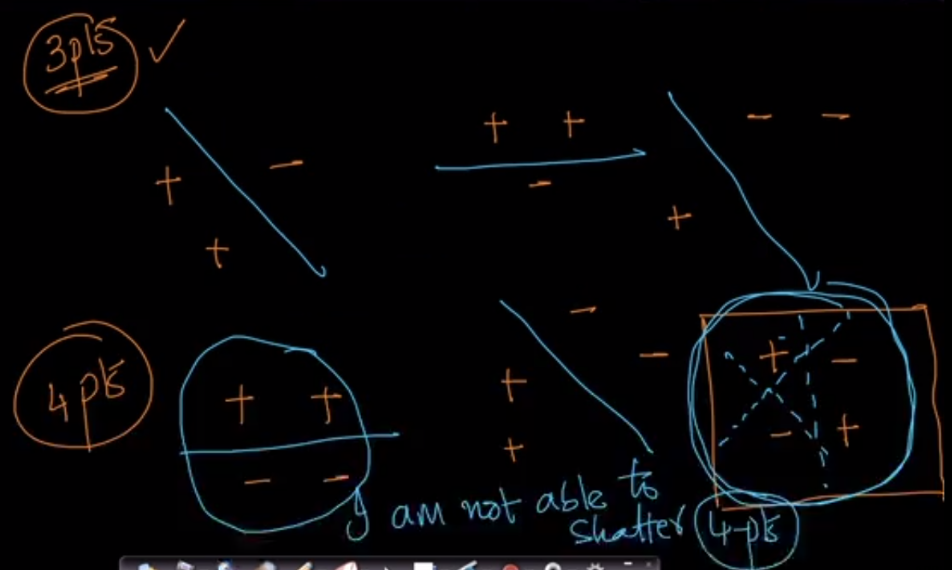 3pts ✓
+ -
+
+ +
-
- -
+
4 pts
+ +
- -
-
+ -
+
+ -
- +
I am not able to
shatter 4-pts